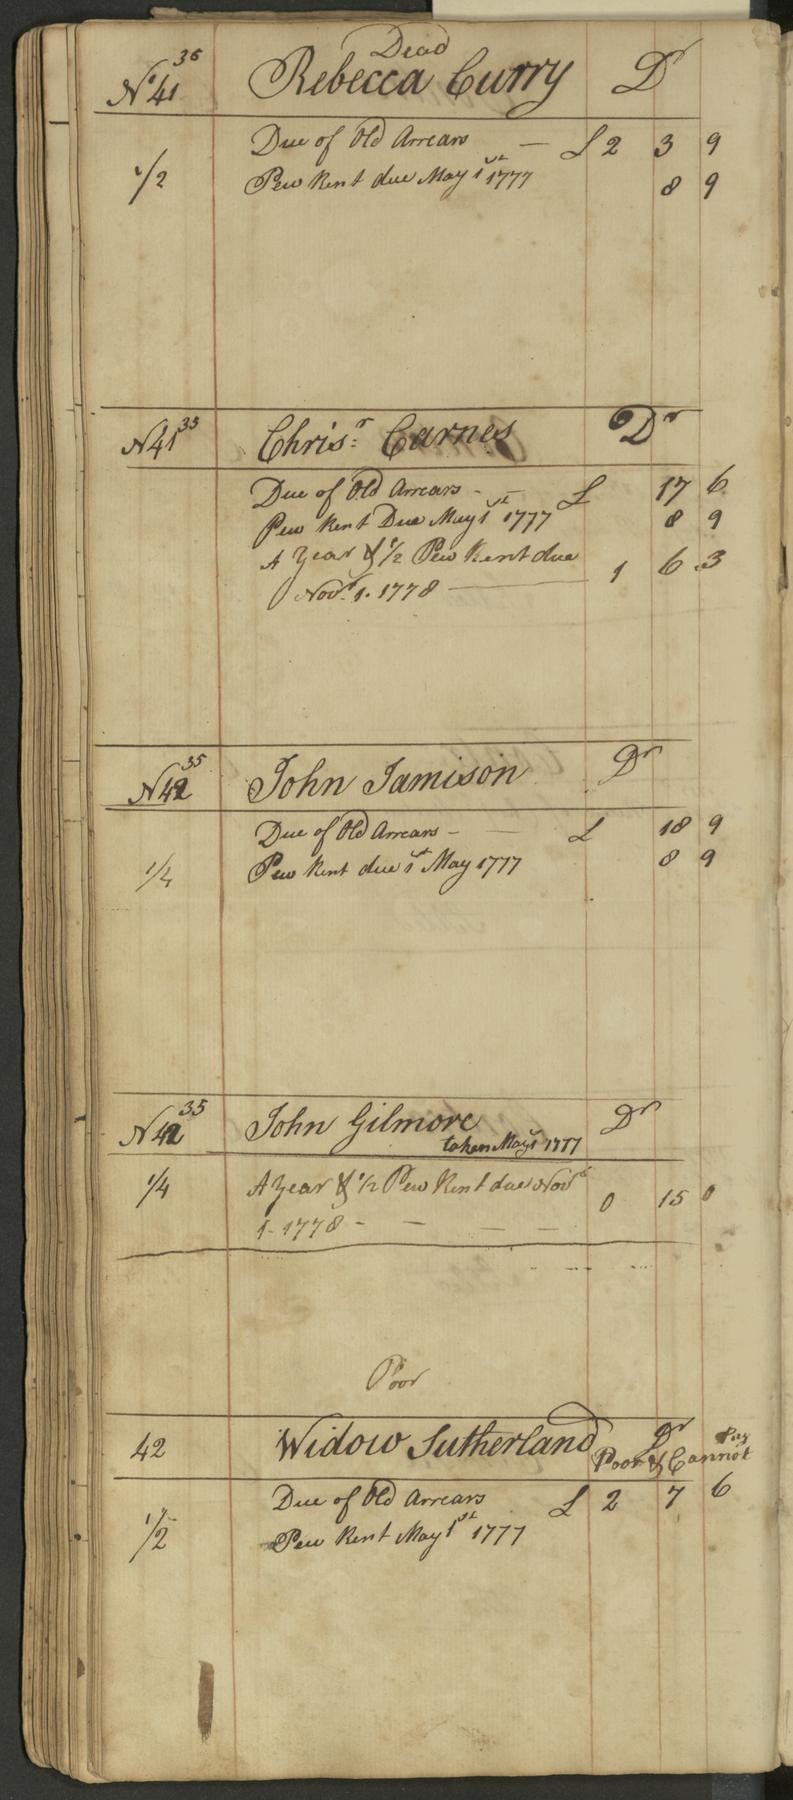 Dead
36
No 41 Rebecca Curry Dr
Due of Old Arrears — £ 2 3 9
1/2 Pew Rent due May 1st 1777 8 9
No 41 35 Chrisr: Carnes Dr
Due of Old Arrears - — £ 17 6
Pew Rent Due May 1st 1777 8 9
A Year & 1/2 Pew Rent due 1 6 3
Novr. 1. 1778 —
35
No 42 John Jamison Dr
Due of Old Arrears - — £ 18 9
1/4 Pew Rent due 1st May 1777 8 9
35
No 42 John Gilmore Dr
taken May 1 1777
1/4 A Year & 1/2 Pew Rent due Novr 0 15 0
1 - 1778 - — — —
Poor
42 Widow Sutherland Dr
Poor & Cannot Pay
Due of Old Arrears £ 2 7 6
1/2 Pew Rent May 1st 1777